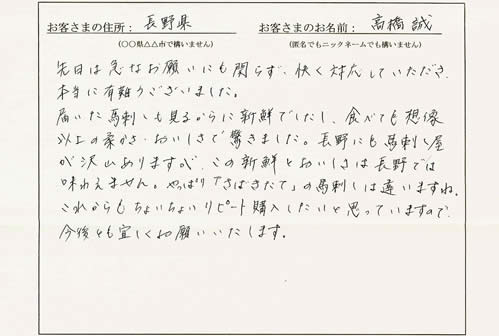 お客さまの住所： 長野県 お客さまのお名前： 高橋 誠
（○○県△△市で構いません） （匿名でもニックネームでも構いません）
先日は急なお願いにも関らず、快く対応していただき、
本当に有難うございました。
届いた馬刺しも見るからに新鮮でしたし、食べても想像
以上の柔かさ・おいしさで驚きました。長野にも馬刺し屋
が沢山ありますが、この新鮮とおいしさは長野では
味わえません。やっぱり「さばきたて」の馬刺しは違いますね。
これからもちょいちょいリピート購入したいと思っていますので、
今後とも宜しくお願いいたします。